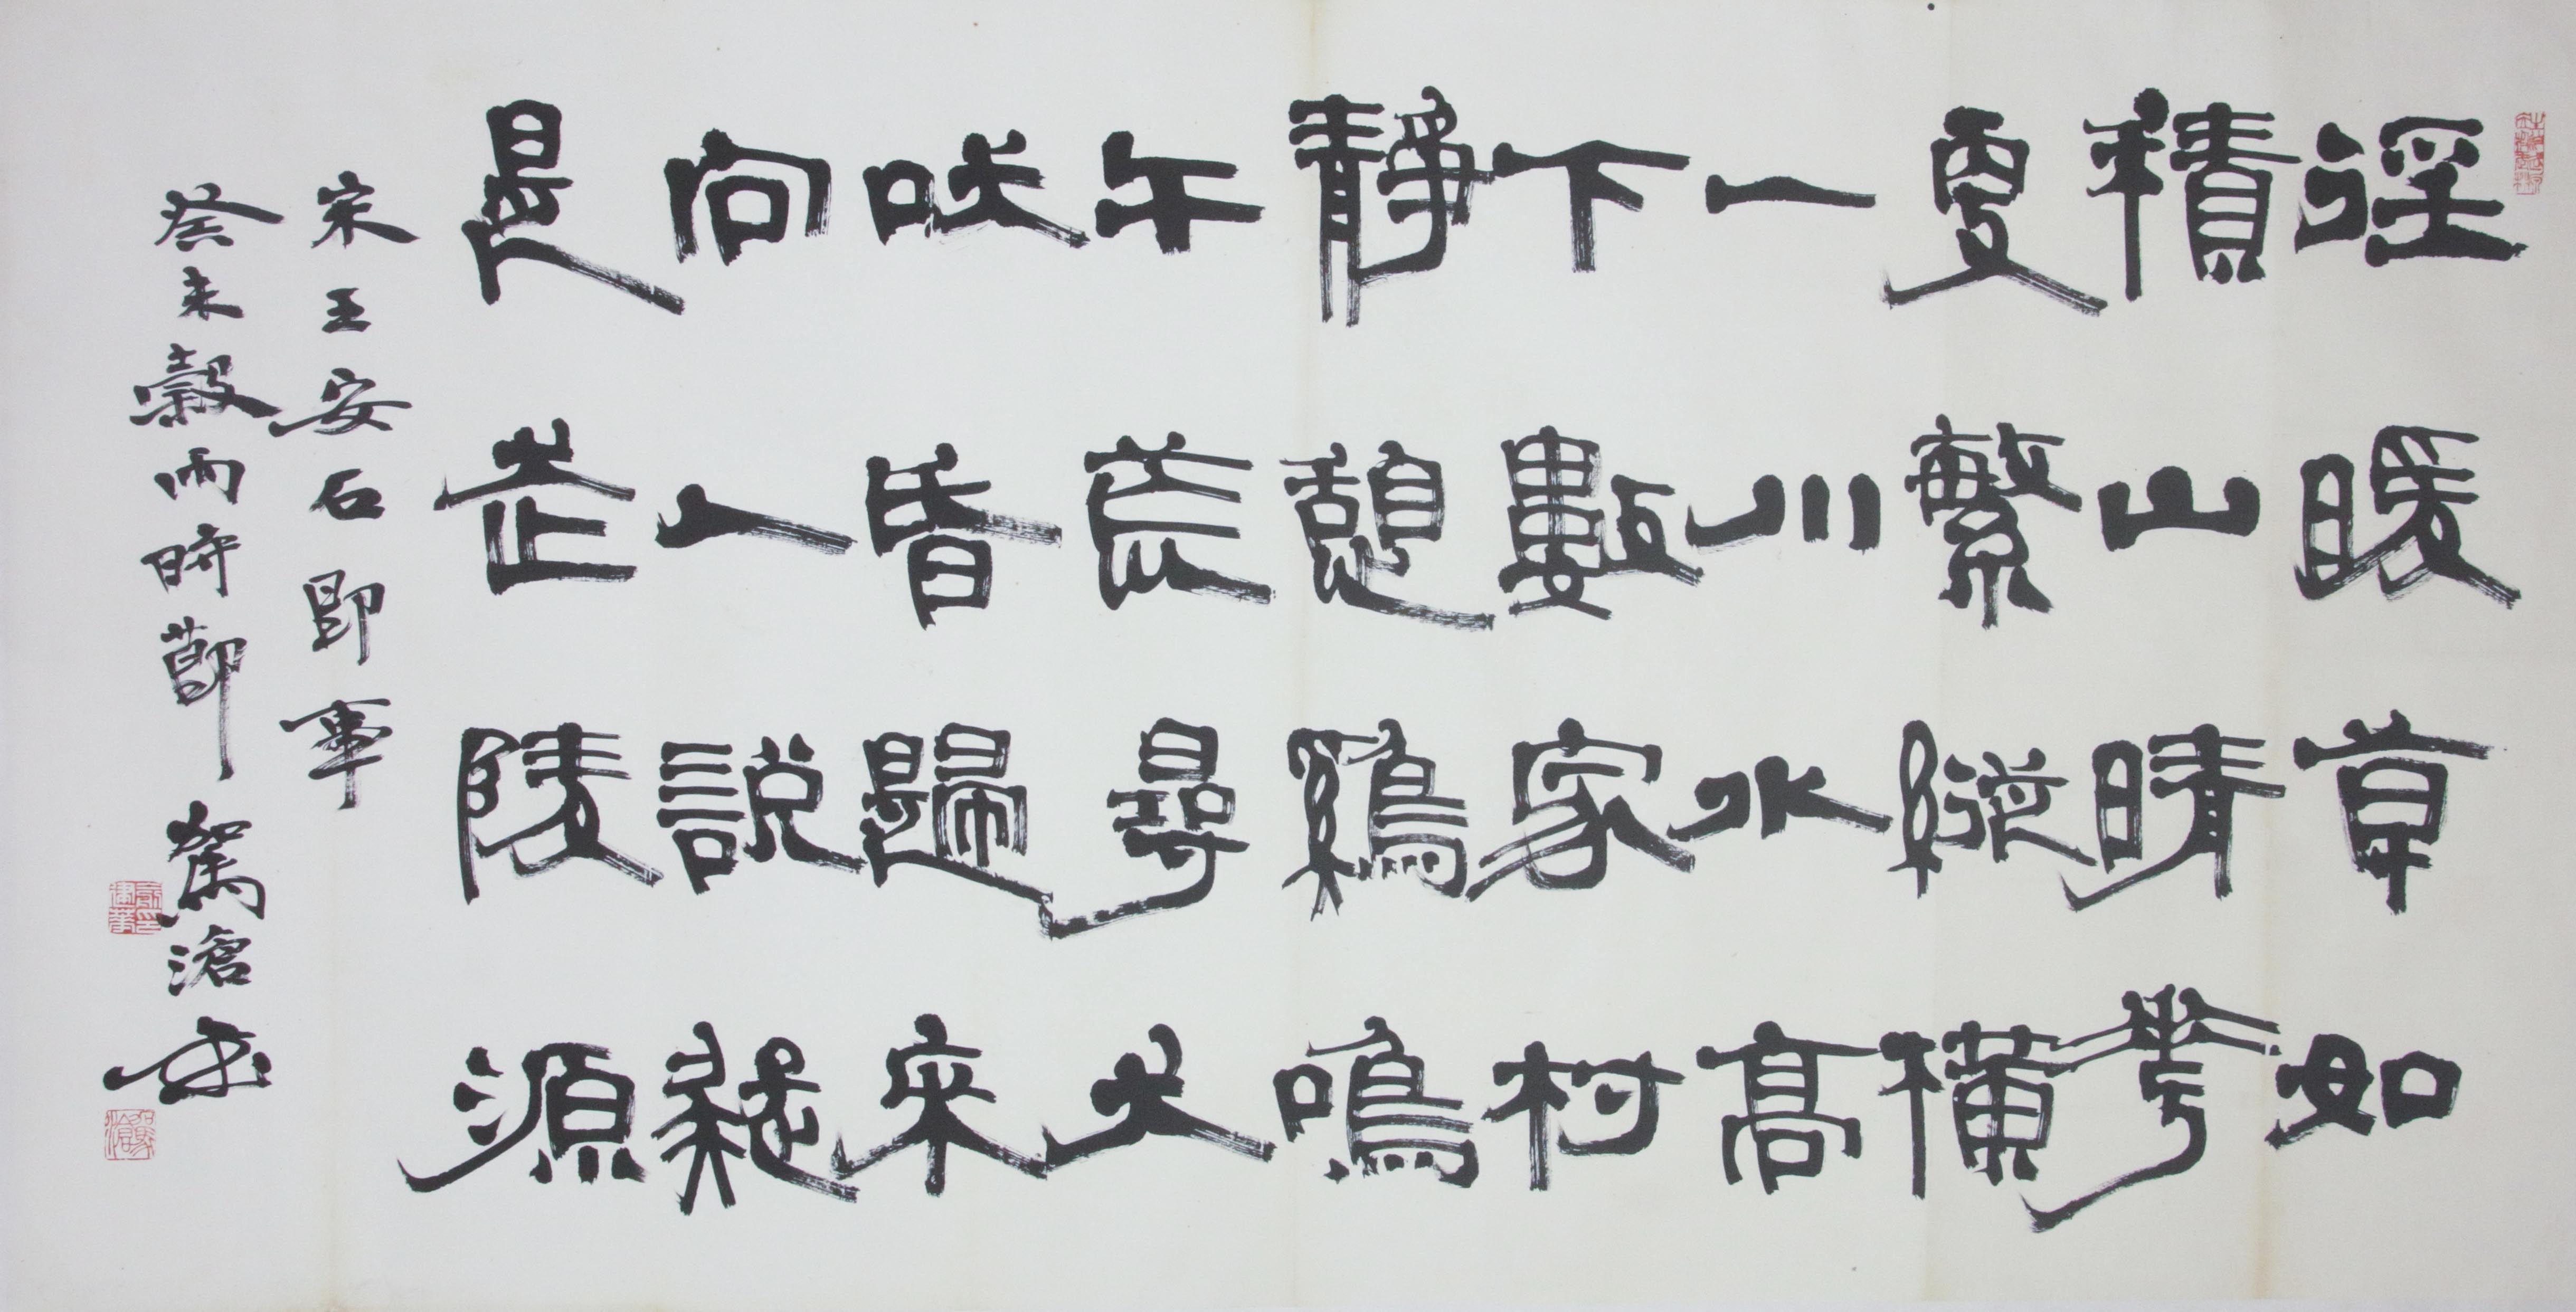 徑暖草如
積山晴華
更繁縱橫
一川水高
下數家村
靜憩鷄鳴
午荒尋犬
吠昏歸來
向人說疑
是武陵源
宋王安石即事
癸未穀雨時節 駕滄書
駕滄